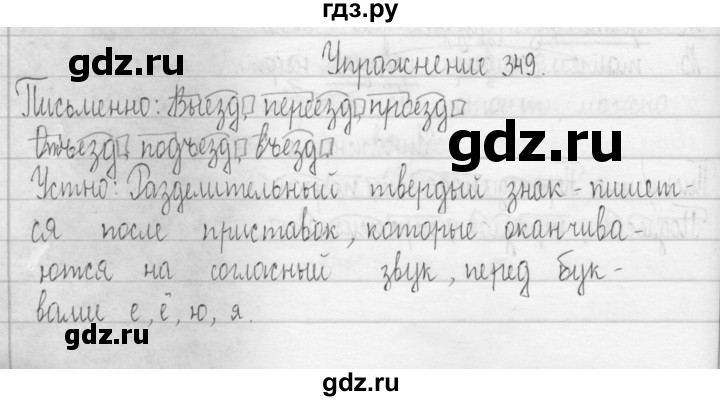 гдз.ру
gdz.ru
Упражнение 349.
Письменно: Выезд, переезд, проезд
gdz.ru
Отъезд, подъезд, въезд
Устно: Разделительный твердый знак - пишист-
ся после приставок, которые оканчива-
ются на согласный звук, перед бук-
вами е, ё, ю, я.
gdz.ru
gdz.ru
gdz.ru